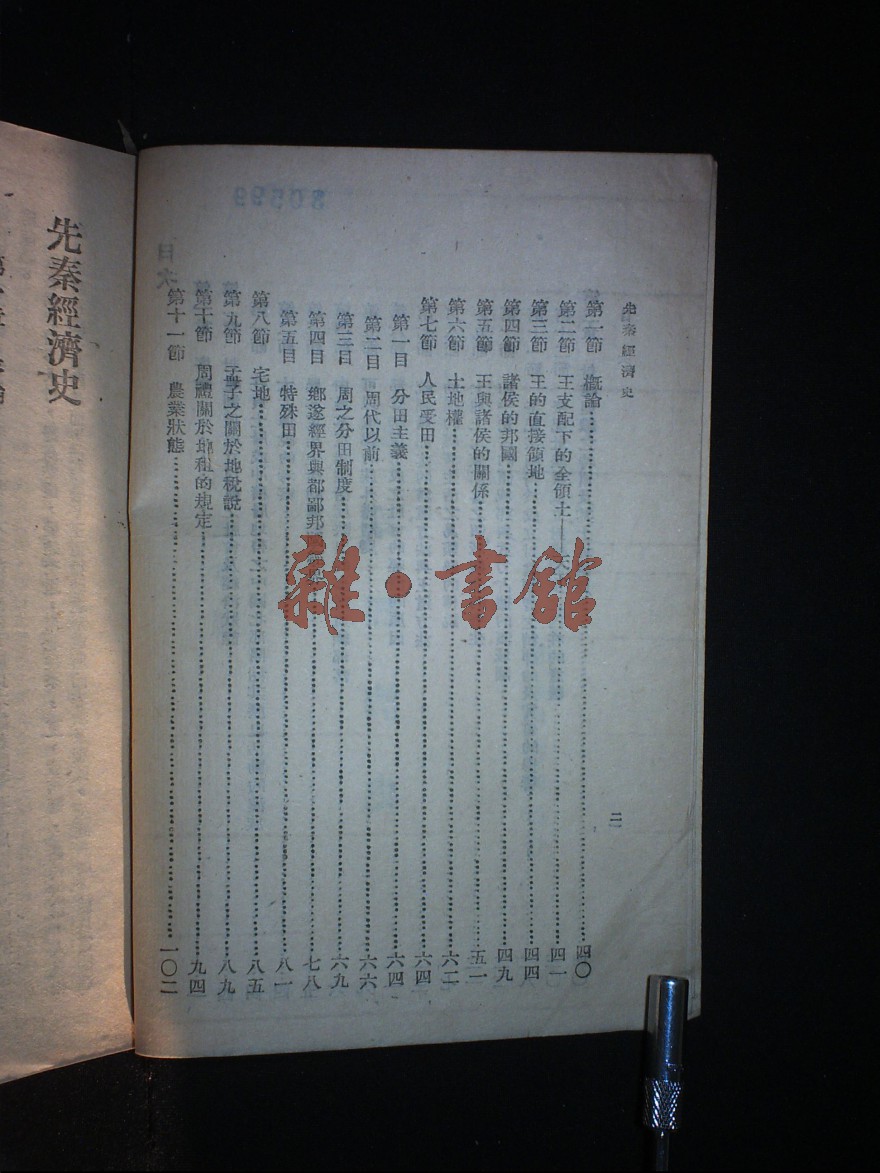 先秦經濟史
二
第一節 概論 四〇
第二節 王支配下的全領土—— 四一
第三節 王的直接領地 四四
第四節 諸侯的邦國 四九
第五節 王與諸侯的關係 五二
第六節 土地權 六二
第七節 人民受田 六四
第一目 分田主義 六四
第二目 周代以前 六六
第三目 周之分田制度 六九
第四目 鄉遂經界與都鄙邦 七八
第五目 特殊田 八一
第八節 宅地 八五
第九節 孟子之關於地稅說 八九
第十節 周禮關於地租的規定 九四
第十一節 農業狀態 一〇二
雜·書館
先秦經濟史